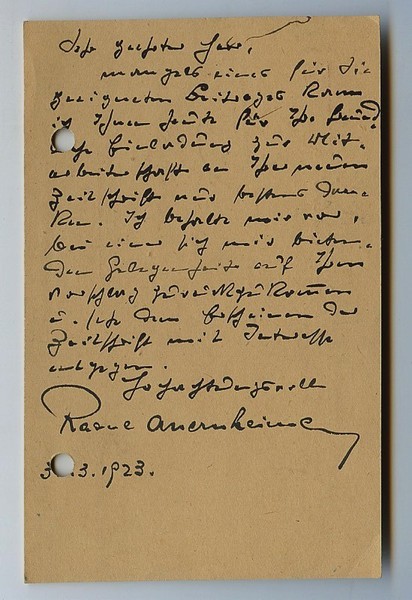 Sehr geehrter Herr,
mangels eines für Sie
geeigneten Beitrages kann
ich Ihnen heute für Ihre freund-
liche Einladung zur Mit-
arbeiterschaft an Ihrer neuen
Zeitschrift nur bestens dan-
ken. Ich behalte mir vor,
bei einer sich mir bieten-
den Gelegenheit auf Ihren
Vorschlag zurückzukommen
u. sehe dem Erscheinen der
Zeitschrift mit Interesse
entgegen.
Hochachtungsvoll
Raoul Auernheimer
3.3.1923.